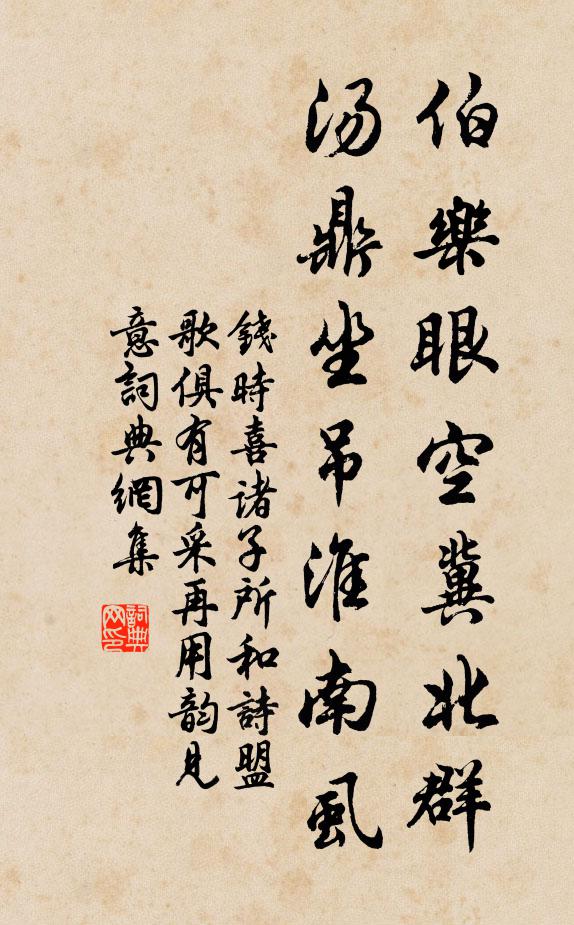 伯樂眼空冀北群
湯鼎坐吊淮南虱
錢時喜諸子所和詩盟
歌俱有可采再用韵見
意詞典網集
詞典
网印